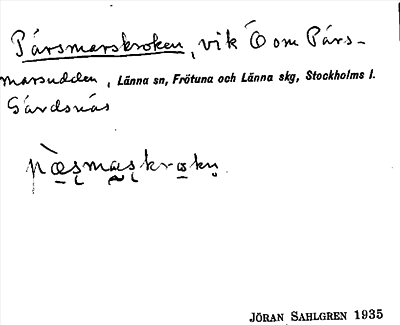 Pärsmarskroken, vik Ö om Pärs-
marsudden, Länna sn, Frötuna och Länna skg, Stockholms l.
Gärdsnäs
JÖRAN SAHLGREN 1935